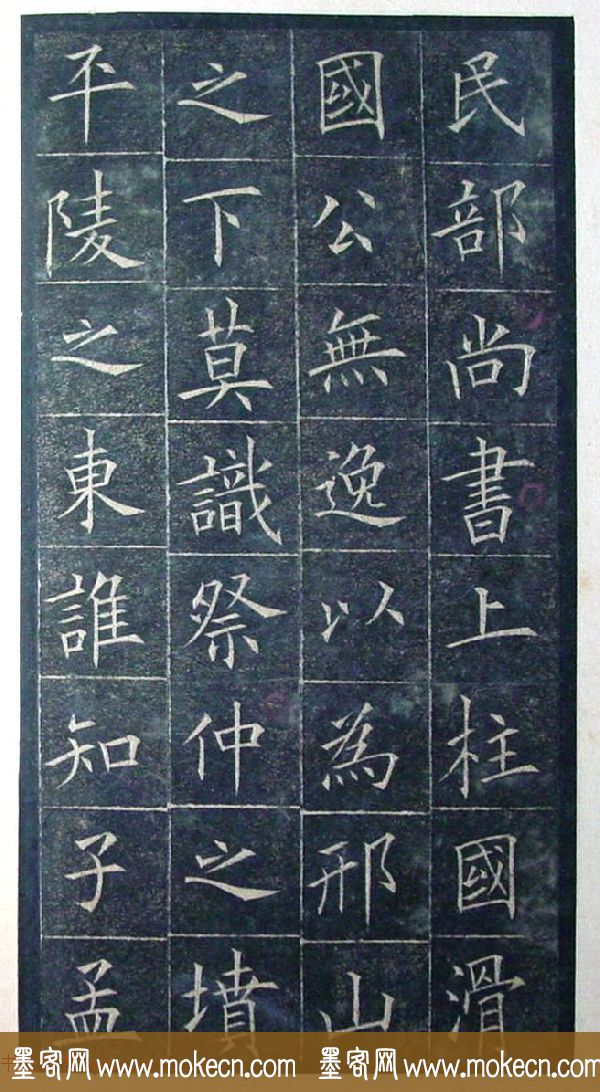 民部尚書上柱國滑
國公無逸以為邢山
之下莫識祭仲之墳
平陵之東誰知子孟
墨客网 www.mokecn.com 墨客网 www.mokecn.com